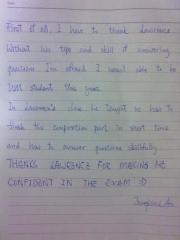 First of all, I have to thank Lawrence
Without his tips and skill of answering
questions I'm afraid I won't able to be
best student this year.
In Lawrence's class he taught us how to
finish the composition part in short time
and how to answer questions skillfully
THANKS LAWRENCE FOR MAKING ME
CONFIDENT IN THE EXAM :D